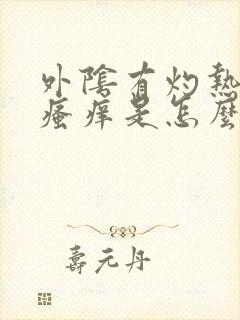 外陰有灼熱
瘙痒是怎麼
壽元丹